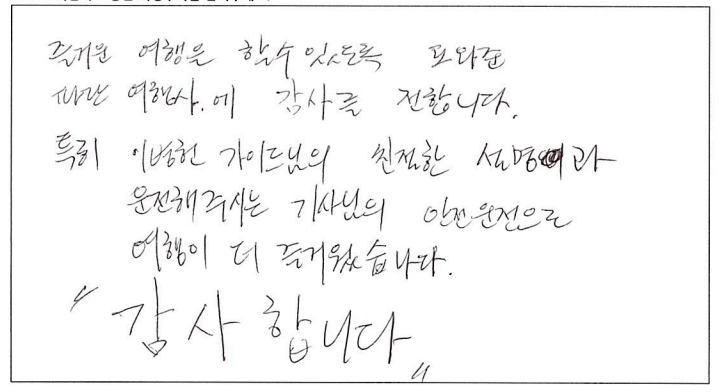 즐거운 여행을 할수 있도록 도와준
파란 여행사.에 감사를 전합니다.
특히 이병헌 가이드님의 친절한 설명과
운전해주시는 기사님의 안전운전으로
여행이 더 즐거웠습니다.
"감사합니다"